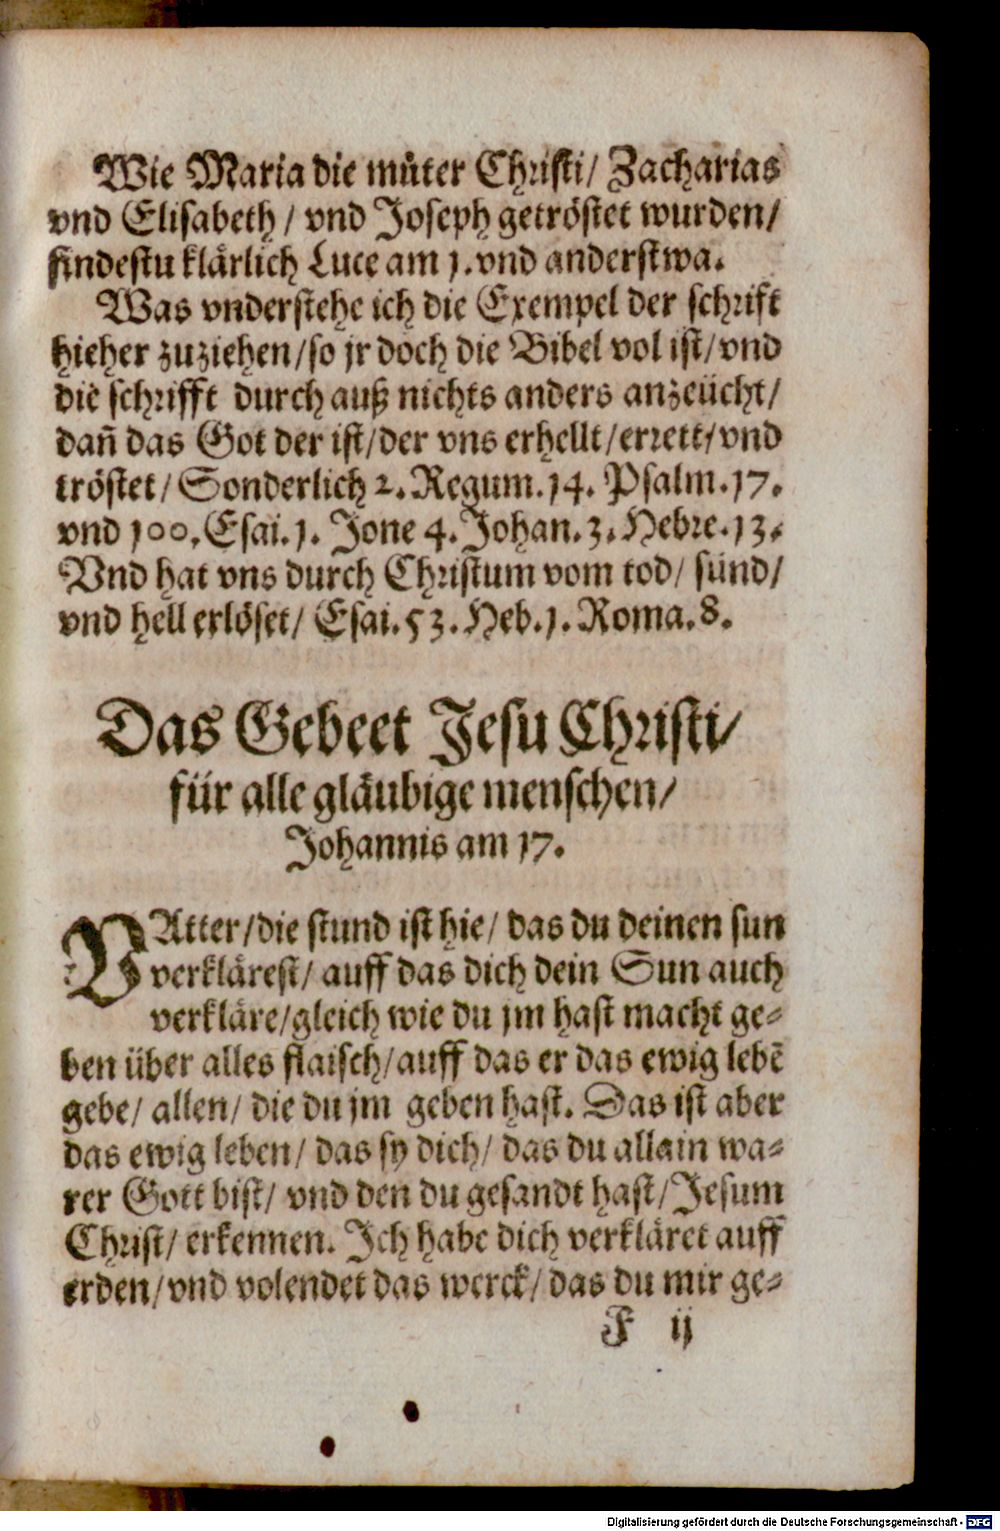 Wie Maria die můter Christi/ Zacharias
vnd Elisabeth/ vnd Joseph getröstet wurden/
findestu klärlich Luce am 1. vnd anderstwa.
Was vnderstehe ich die Exempel der schrift
hieher zuziehen/so jr doch die Bibel vol ist/vnd
die schrifft durch auß nichts anders anzeücht/
dañ das Got der ist/der vns erhellt/errett/vnd
tröstet/ Sonderlich 2. Regum. 14. Psalm. 17.
vnd 100. Esai. 1. Jone 4. Johan. 3. Hebre. 13.
Vnd hat vns durch Christum vom tod/ sünd/
vnd hell erlöset/ Esai. 53. Heb. 1. Roma. 8.
Das Gebeet Jesu Christi/
für alle gläubige menschen/
Johannis am 17.
VAtter/die stund ist hie/ das du deinen sun
verklärest/ auff das dich dein Sun auch
verkläre/gleich wie du jm hast macht ge-
ben über alles flaisch/auff das er das ewig lebē
gebe/ allen/ die du jm geben hast. Das ist aber
das ewig leben/ das sy dich/ das du allain wa-
rer Gott bist/ vnd den du gesandt hast/Jesum
Christ/ erkennen. Ich habe dich verkläret auff
erden/vnd volendet das werck/ das du mir ge-
F ij
Digitalisierung gefördert durch die Deutsche Forschungsgemeinschaft - DFG